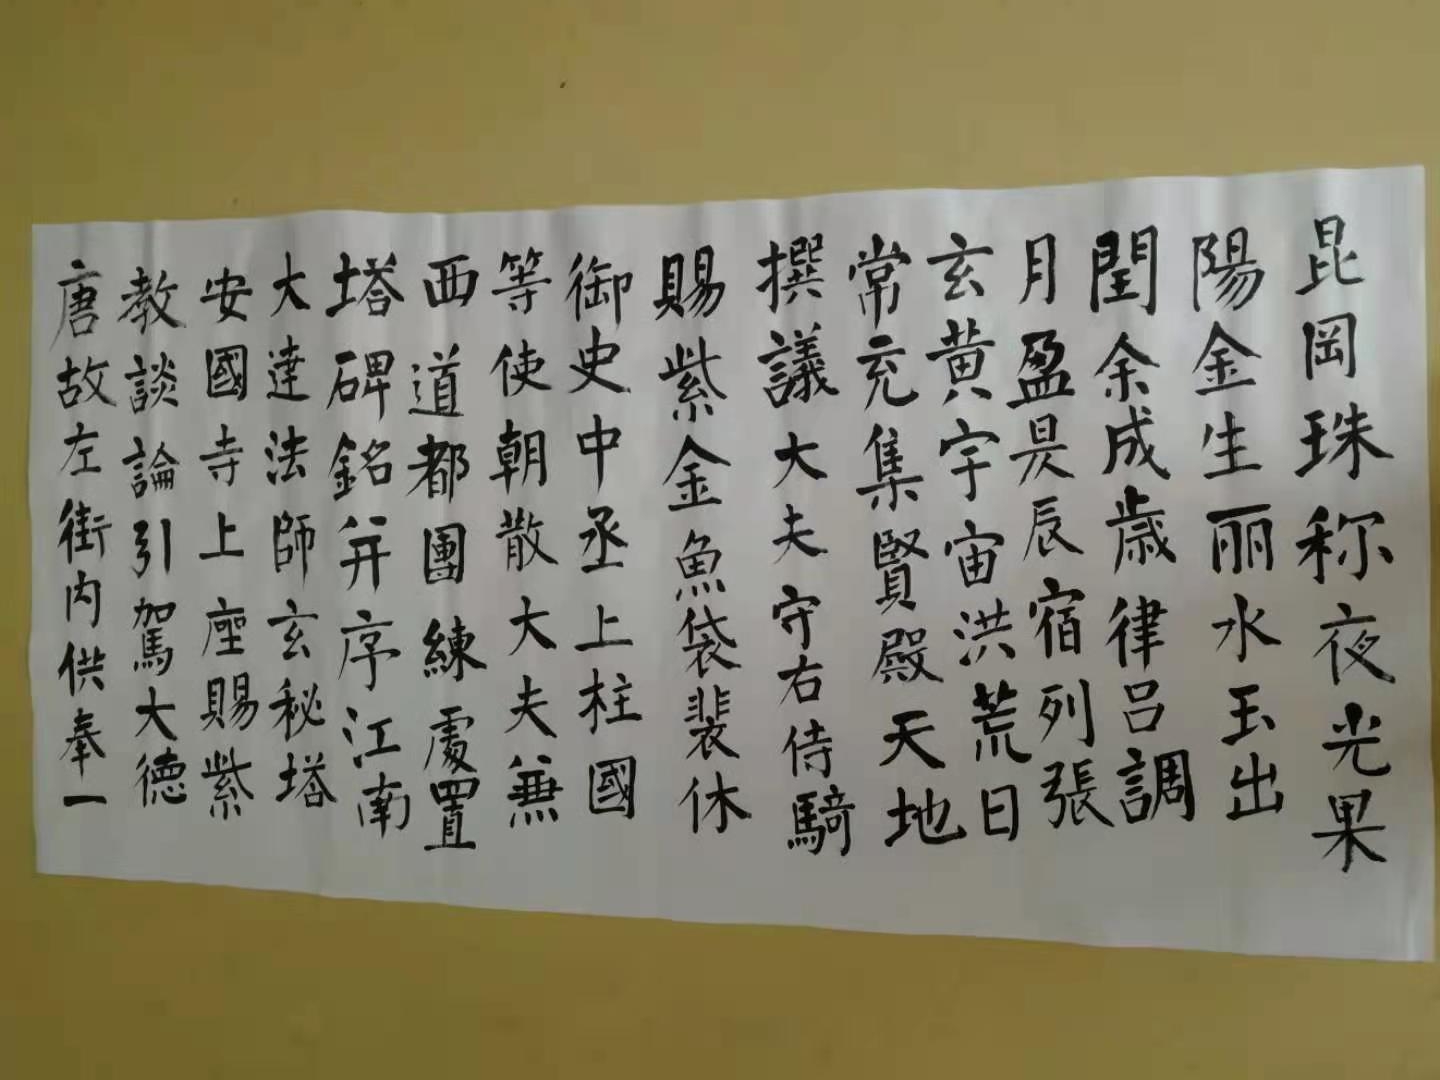 昆岡珠称夜光果
陽金生丽水玉出
閏余成歳律吕調
月盈昃辰宿列張
玄黄宇宙洪荒日
常充集賢殿天地
撰議大夫守右侍騎
賜紫金魚袋裴休
御史中丞上柱國
等使朝散大夫兼
西道都團練處置
塔碑銘并序江南
大達法師玄秘塔
安國寺上座賜紫
教談論引駕大德
唐故左街内供奉一